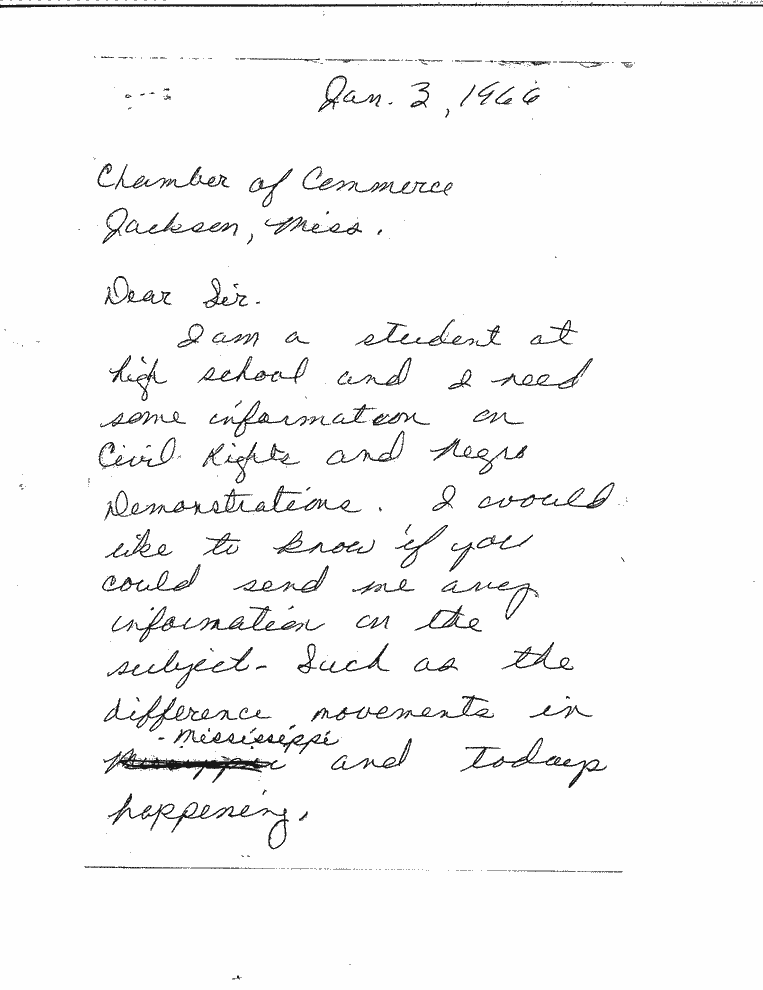 Jan. 3, 1966
Chamber of Commerce
Jackson, Miss.
Dear Sir.
I am a student at
high school and I need
some information on
Civil Rights and Negro
Demonstrations. I would
like to know if you
could send me any
information on the
subject- Such as the
difference movements in
- Mississippi
and todays
happening.